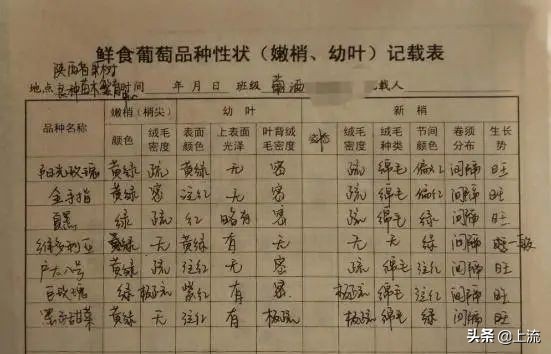 鲜食葡萄品种性状（嫩梢、幼叶）记载表
陕西省果树
地点 良种苗木繁育 时间 年 月 日 班级 葡酒 记载人
嫩梢(梢尖) 幼叶 新梢
品种名称 颜色 绒毛密度 表面颜色 上表面光泽 叶背绒毛密度 姿态 绒毛密度 绒毛种类 节间颜色 卷须分布 生长势
阳光玫瑰 黄绿 疏 黄绿 无 密 疏 绵毛 偏红 间隔 旺
金手指 黄绿 密 注红 无 密 疏 绵毛 偏红 间隔 旺
夏黑 绿 疏 红 略有 密 疏 绵毛 绿 间隔 旺
维多利亚 黄绿 无 黄绿 有 无 无 无 绿 间隔 一般
户太八号 黄绿 疏 注红 无 密 疏 绵毛 注红 间隔 旺
巨玫瑰 绿 极疏 紫红 有 密 极疏 绵毛 注红 间隔 旺
黄绿 无 注红 有 极疏 极疏 绵毛 绿 间隔 旺
头条 @上流